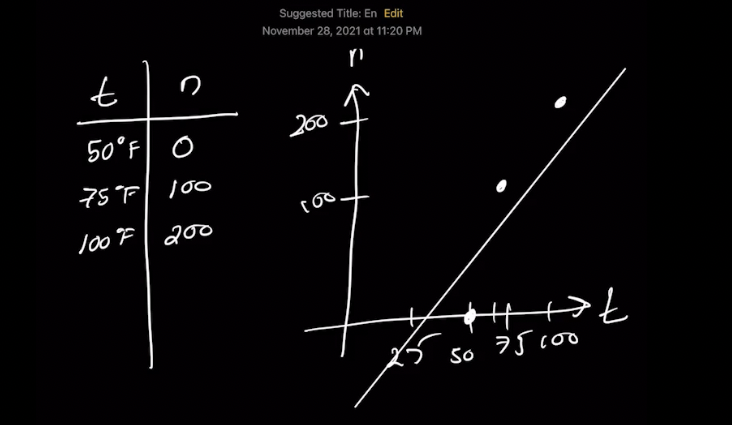 Suggested Title: En Edit
November 28, 2021 at 11:20 PM
t n
50°F 0
75°F 100
100°F 200
n
200
100
25 50 75 100 t